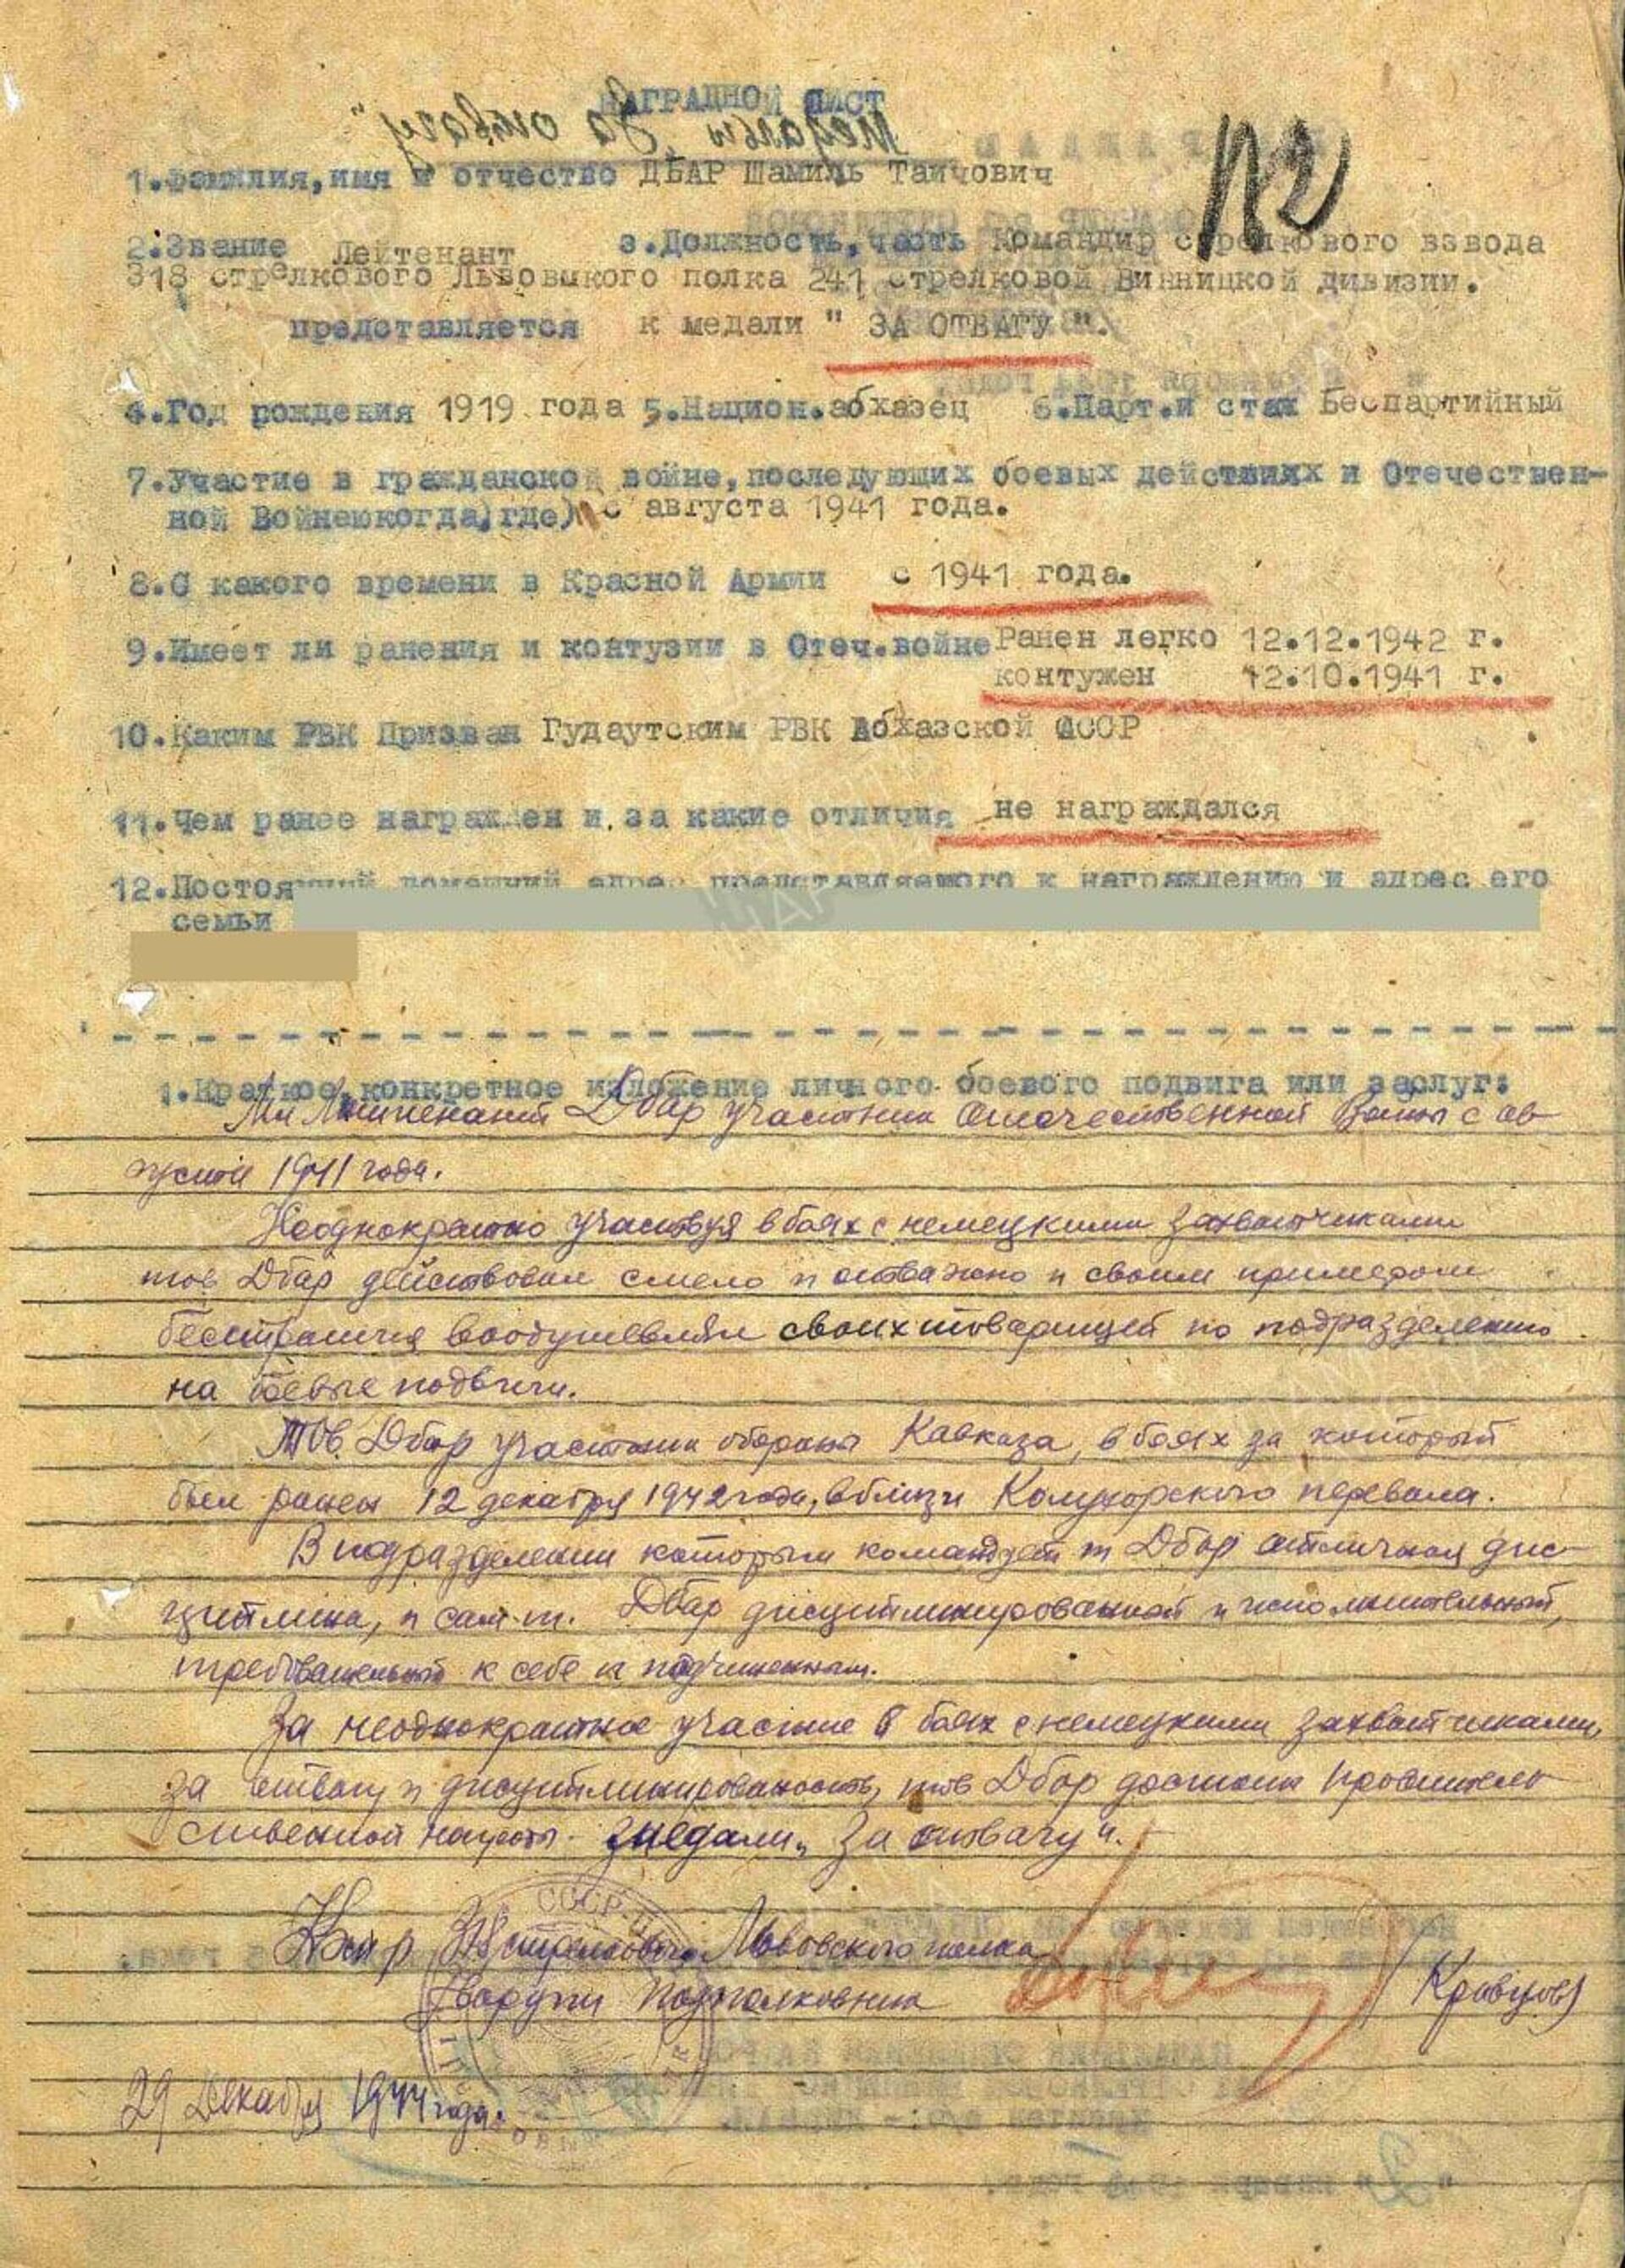 НАГРАДНОЙ ЛИСТ
1.Фамилия,имя и отчество ДБАР Шамиль Таичович
2.Звание Лейтенант 3.Должность,часть Командир стрелкового взвода
318 стрелкового Львовского полка 241 стрелковой Винницкой дивизии.
представляется к медали " ЗА ОТВАГУ ".
4.Год рождения 1919 года 5.Национ.абхазец 6.Парт.и стаж Беспартийный
7.Участие в гражданской войне,последующих боевых действиях и Отечествен-
ной Войне(когда,где) с августа 1941 года.
8.С какого времени в Красной Армии с 1941 года.
9.Имеет ли ранения и контузии в Отеч.войне Ранен легко 12.12.1942 г.
контужен 12.10.1941 г.
10.Каким РВК Призван Гудаутским РВК Абхазской АССР
11.Чем ранее награжден и за какие отличия не награждался
12.Постоянный домашний адрес представляемого к награждению и адрес его
семьи
1.Краткое,конкретное изложение личного боевого подвига или заслуг:
Лейтенант Дбар участник Отечественной Войны с ав-
густа 1941 года.
Неоднократно участвуя в боях с немецкими захватчиками
тов Дбар действовал смело и отважно и своим примером
бесстрашия воодушевлял своих товарищей по подразделению
на боевые подвиги.
Тов. Дбар участник обороны Кавказа, в боях за который
был ранен 12 декабря 1942 года, вблизи Клухорского перевала.
В подразделении которым командует т Дбар отличная дис-
циплина, и сам т. Дбар дисциплинированный и исполнительный,
требовательный к себе и подчиненным.
За неоднократное участие в боях с немецкими захватчиками,
за отвагу и дисциплинированость, тов Дбар достоин правитель-
ственной награды медали „За отвагу".
К-р 318 стрелкового Львовского полка
Гвардии Подполковник /Кравцов/
29 Декабря 1944 года.